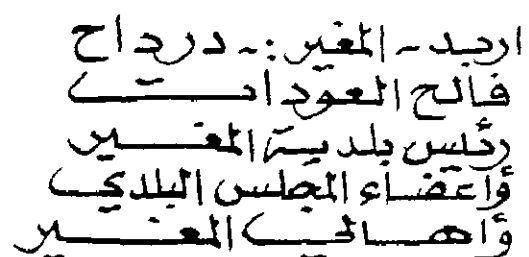 اربد - المغير :- درداح
فالح العودات
رئيس بلدية المغير
وأعضاء المجلس البلدي
وأهالي المغير